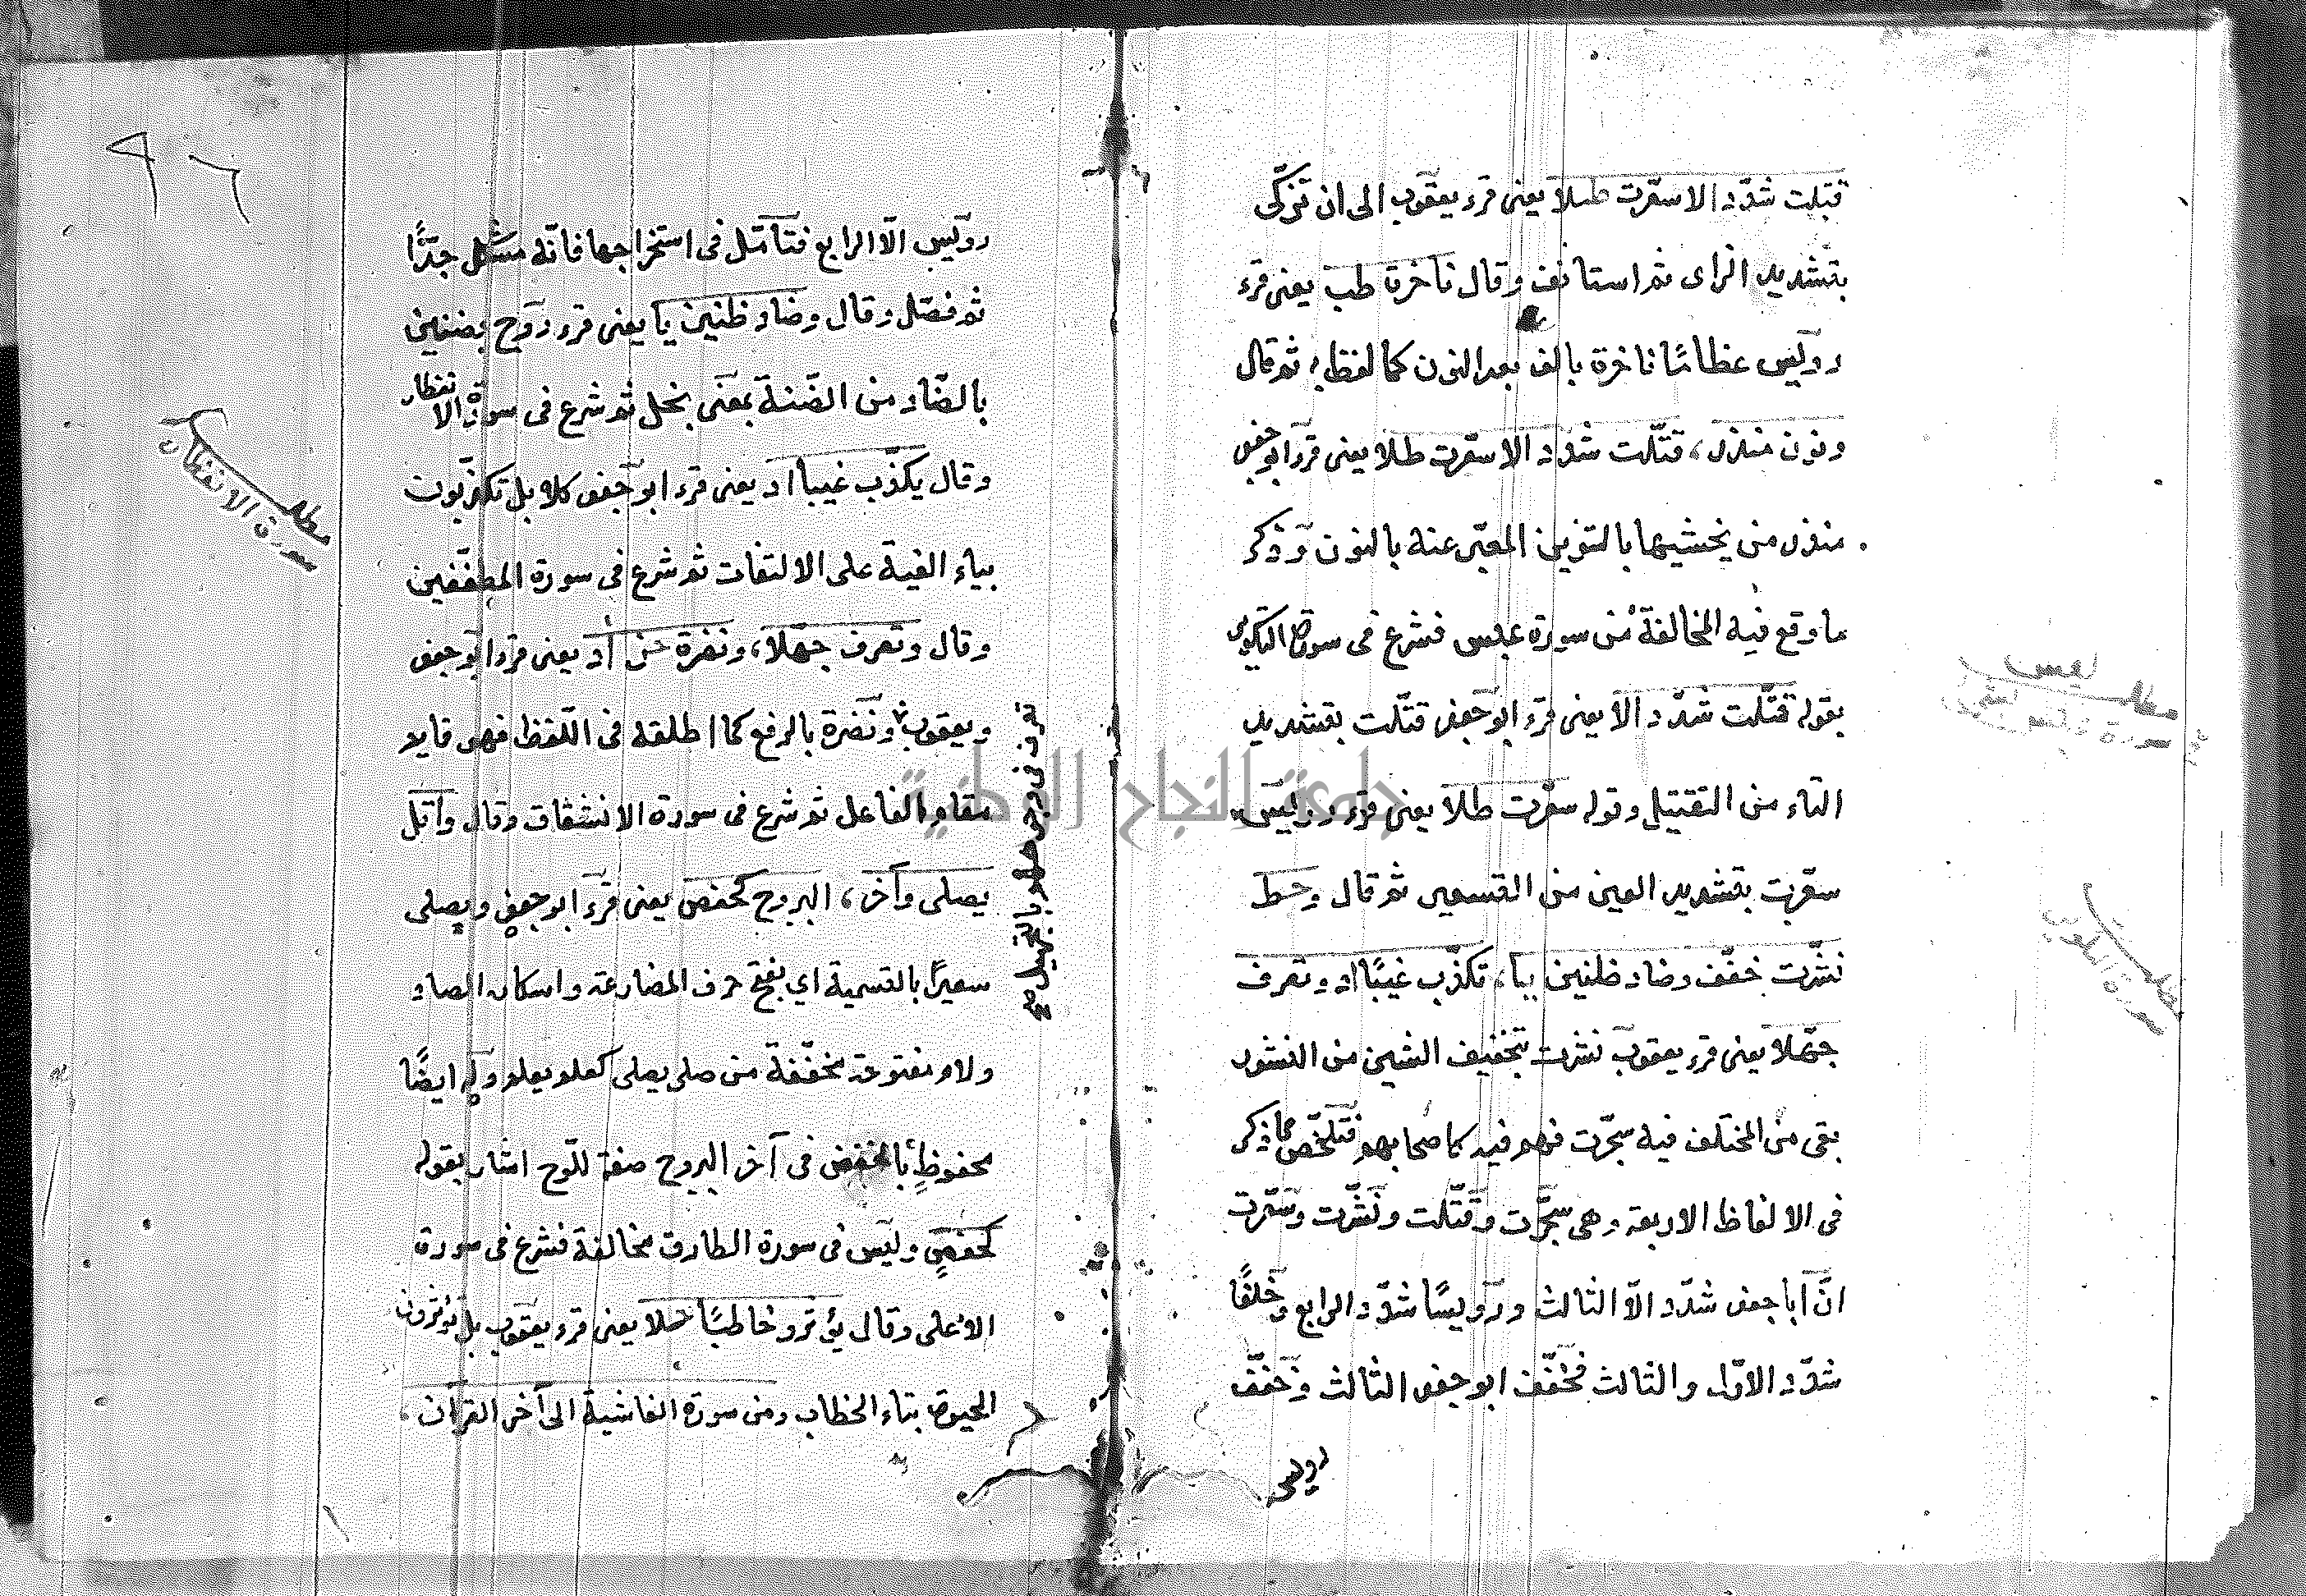 قتلت شدّد الا سعّرت طلا يعنى قرء يعقوب الى ان تزّكّى
بتشديد الزاى ثم استانف وقال ناخرة طب يعنى قرء
رويس عظامًا ناخرة بالف بعد النون كما لفظ به ثم قال
ونون منذر، قتّلت شدّد الا سعّرت طلا يعنى قرء ابو جعفر
منذر من يخشيها بالتنوين المعبّر عنه بالنون وذكر
ما وقع فيه المخالفة من سورة عبس فشرع فى سورة التكوير
بقوله قتّلت شدّد الا يعنى قرء ابو جعفر قتّلت بتشديد
التاء من التقتيل وقوله سعّرت طلا يعنى قرء رويس
سعّرت بتشديد العين من التسعير ثم قال وحط
نشّرت خفّف وضاد ظنين يا، تكذّب غيبًا اد وتعرف
جهّلا يعنى قرء يعقوب نشرت بتخفيف الشين من النشور
بقى من المختلف فيه سجّرت فهم فيه كاصحابهم فتلخّص مما ذكر
فى الالفاظ الاربعة وهى سجّرت وقتّلت ونشّرت وسعّرت
انّ ابا جعفر شدّد الّا الثالث ورويسًا شدّد الرابع وخلفًا
شدّد الاوّل والثالث فخفّف ابو جعفر الثالث وخفّف
رويس
٩٦
رويس الّا الرابع فتأمّل فى استخراجها فانّه مشكل جدًّا
ثم فصّل وقال وضاد ظنين يا يعنى قرء روح بضنين
بالضّاد من الضّنة بمعنى بخل ثم شرع فى سورة الانفطار
وقال يكذّب غيبا اد يعنى قرء ابو جعفر كلا بل تكذّبون
بياء الغيبة على الالتفات ثم شرع فى سورة المطفّفين
وقال وتعرف جهّلا، ونضرة حز اد يعنى قرء ابو جعفر
ويعقوب ونضرة بالرفع كما اطلقه فى اللّفظ فهى قايم
مقام الفاعل ثم شرع فى سورة الانشقاق وقال واتل
يصلى وآخر، البروج كحفص يعنى قرء ابو جعفر ويصلى
سعيرًا بالتسمية اي بفتح حرف المضارعة واسكان الصاد
ولام مفتوحة مخفّفة من صلى يصلى كعلم يعلم وله ايضًا
محفوظٍ بالخفض فى آخر البروج صفة للّوح اشار بقوله
كحفصٍ وليس فى سورة الطارق مخالفة فشرع فى سورة
الاعلى وقال يؤثرو خاطبًا حلا يعنى قرء يعقوب بل تؤثرون
الحيوة بتاء الخطاب ومن سورة الغاشية الى آخر القرآن
مطلب
سورة الانفطار
جامعة النجاح الوطنية